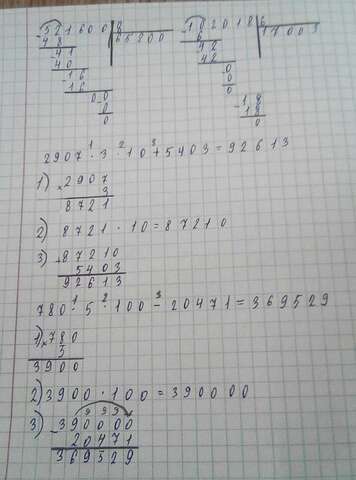 -521600 | 8
48 | 65200
-41
40
-16
16
00
0
0
-102018 | 6
6 | 17003
42
42
0
0
0
-18
18
0
1 2 3
2907 · 3 · 10 + 5403 = 92613
1) × 2907
3
8721
2) 8721 · 10 = 87210
3) + 87210
5403
92613
1 2 3
780 · 5 · 100 - 20471 = 369529
1) × 780
5
3900
2) 3900 · 100 = 390000
999
3) - 390000
20471
369529